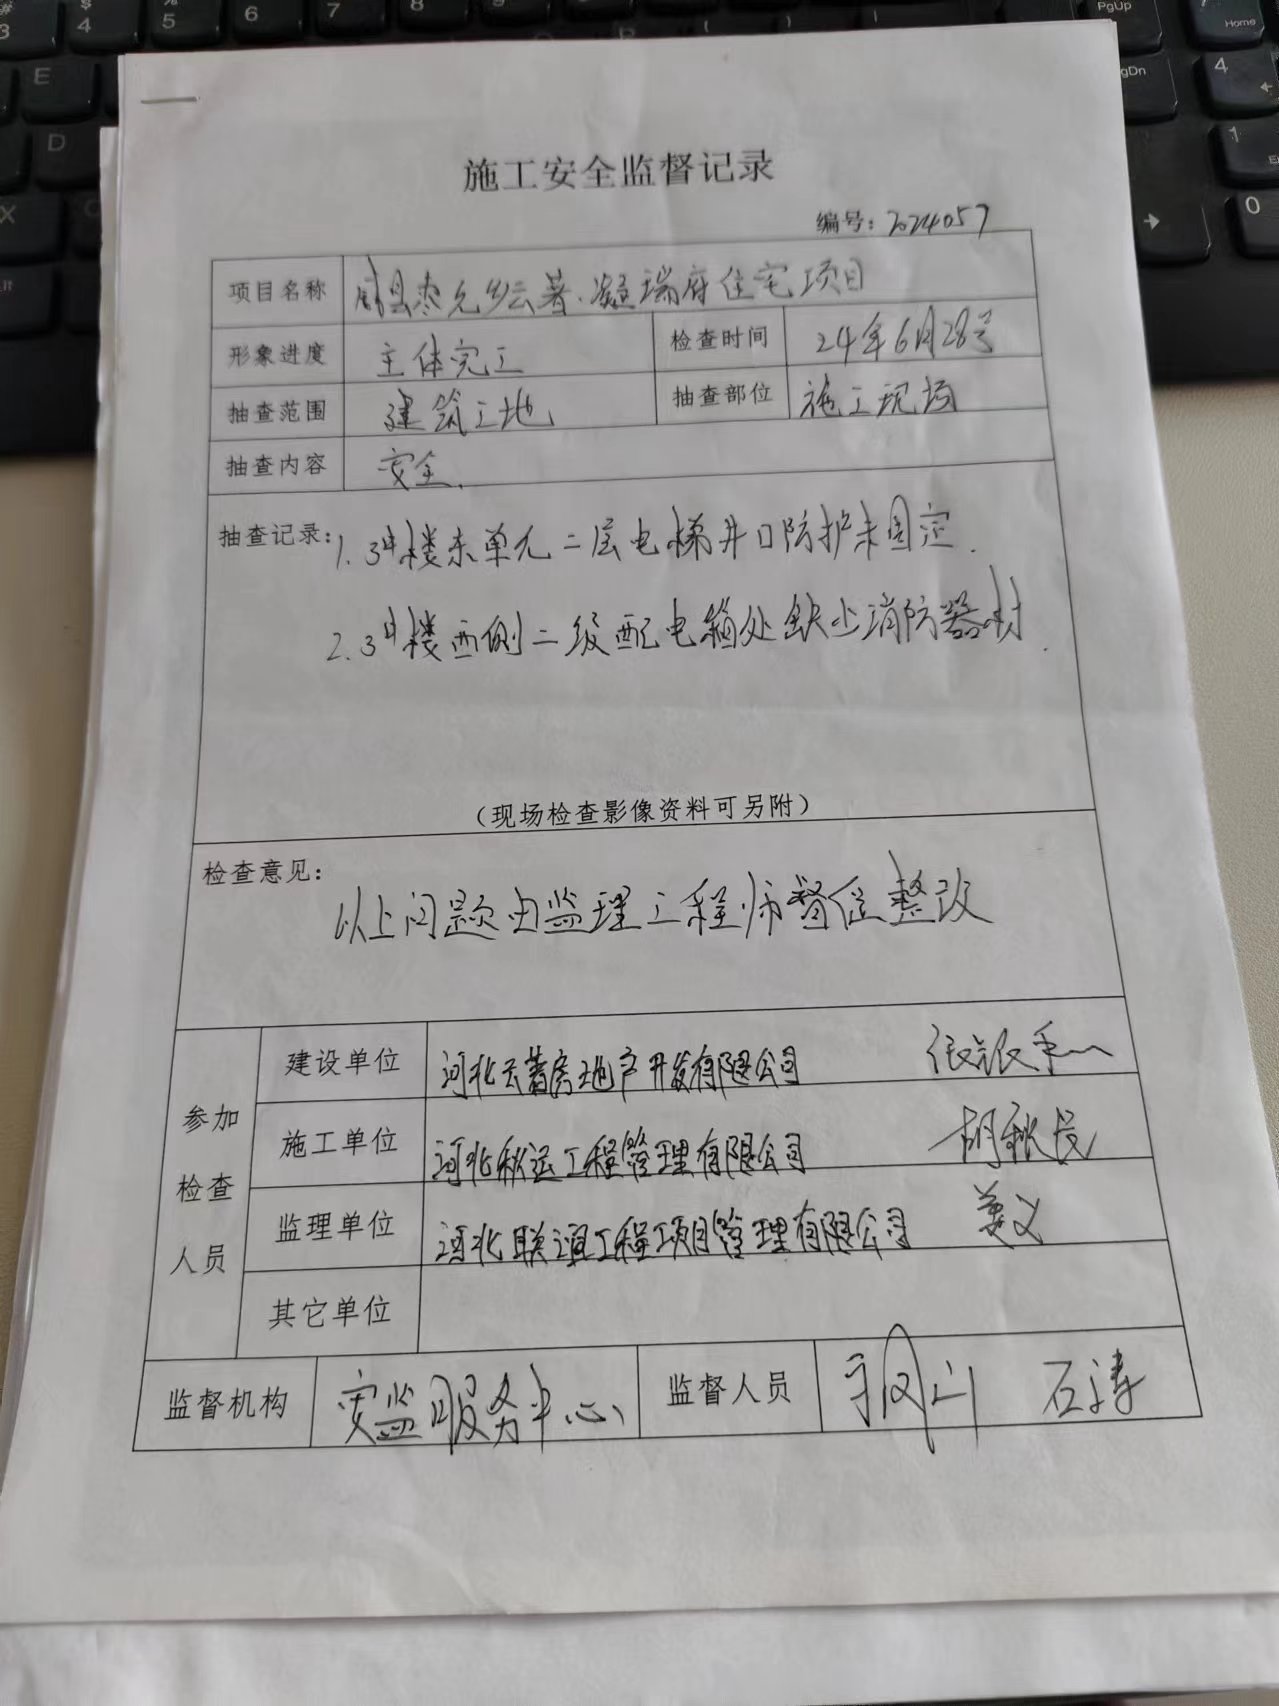 施工安全监督记录
编号：2024057
项目名称 威县杰元乡云著.凝瑞府住宅项目
形象进度 主体完工 检查时间 24年6月28号
抽查范围 建筑工地 抽查部位 施工现场
抽查内容 安全.
抽查记录：1.3#楼东单元二层电梯井口防护未固定.
2.3#楼西侧二级配电箱处缺少消防器材.
（现场检查影像资料可另附）
检查意见：
以上问题由监理工程师督促整改
参加检查人员
建设单位 河北云著房地产开发有限公司
施工单位 河北秋远工程管理有限公司 胡秋良
监理单位 河北联谊工程项目管理有限公司 姜义
其它单位
监督机构 安监服务中心 监督人员 石涛